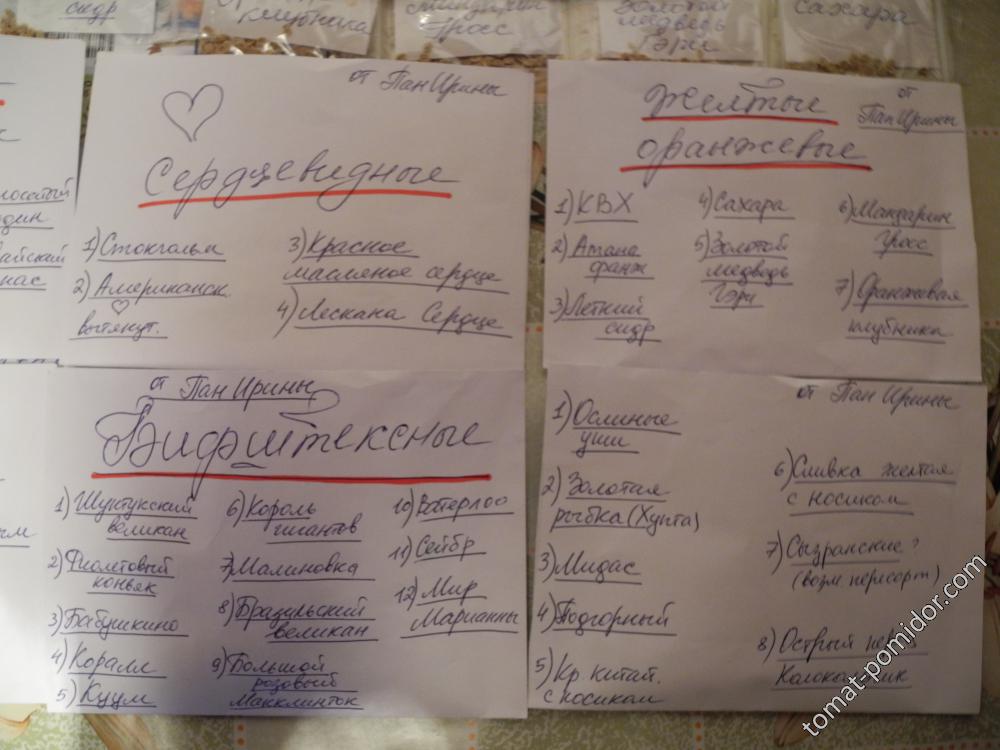 сидр
клубника
Гросс
Золотой
медведь
Гэри
Сахара
от Пан Ирины
Сердцевидные
1) Стокгольм
2) Американск.
вытянут.
3) Красное
масляное сердце
4) Лескана Сердце
Желтые
от
Пан Ирины
оранжевые
1) КВХ
2) Атана
оранж
3) Летний
сидр
4) Сахара
5) Золотой
медведь
Гэри
6) Мандарин
Гросс
7) Оранжевая
клубника
от Пан Ирины
Бифштексные
1) Шунтукский
великан
2) Фиолетовый
коньяк
3) Бабушкино
4) Коралл
5) Куум
6) Король
гигантов
7) Малиновка
8) Бразульский
великан
9) Большой
розовый
Макклинток
10) Ватерлоо
11) Сейбр
12) Мир
Марианны
от Пан Ирины
1) Ослиные
уши
2) Золотая
рыбка (Хунта)
3) Мидас
4) Подгорный
5) Кр. китай.
с носиком
6) Сливка желтая
с носиком
7) Сызранские?
(возм пересорт)
8) Острый
tomat-pomidor.com